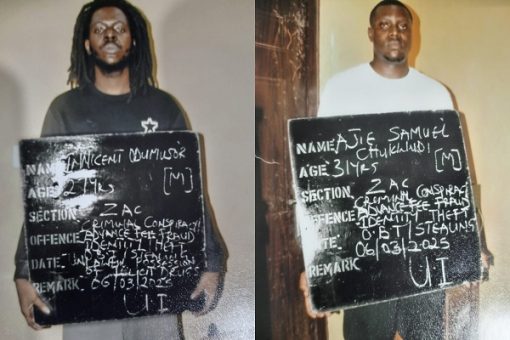 NAME INNICENT ODUMUSOR
AGE 21Yrs [M]
SECTION ZAC
CRIMINAL CONSPIRACY
OFFENCE ADVANCE FEE FRAUD
IDENTITY THEFT
/ STEALING
DATE IN
OF ILLICIT DRUGS
REMARK 06/03/2025
UI
NAME AJIE SAMUEL
CHUKWUDI
AGE 31Yrs [M]
SECTION ZAC
CRIMINAL CONSPIRACY
OFFENCE ADVANCE FEE FRAUD
IDENTITY THEFT
O.B.T / STEALING
DATE 06/03/2025
REMARK
UI